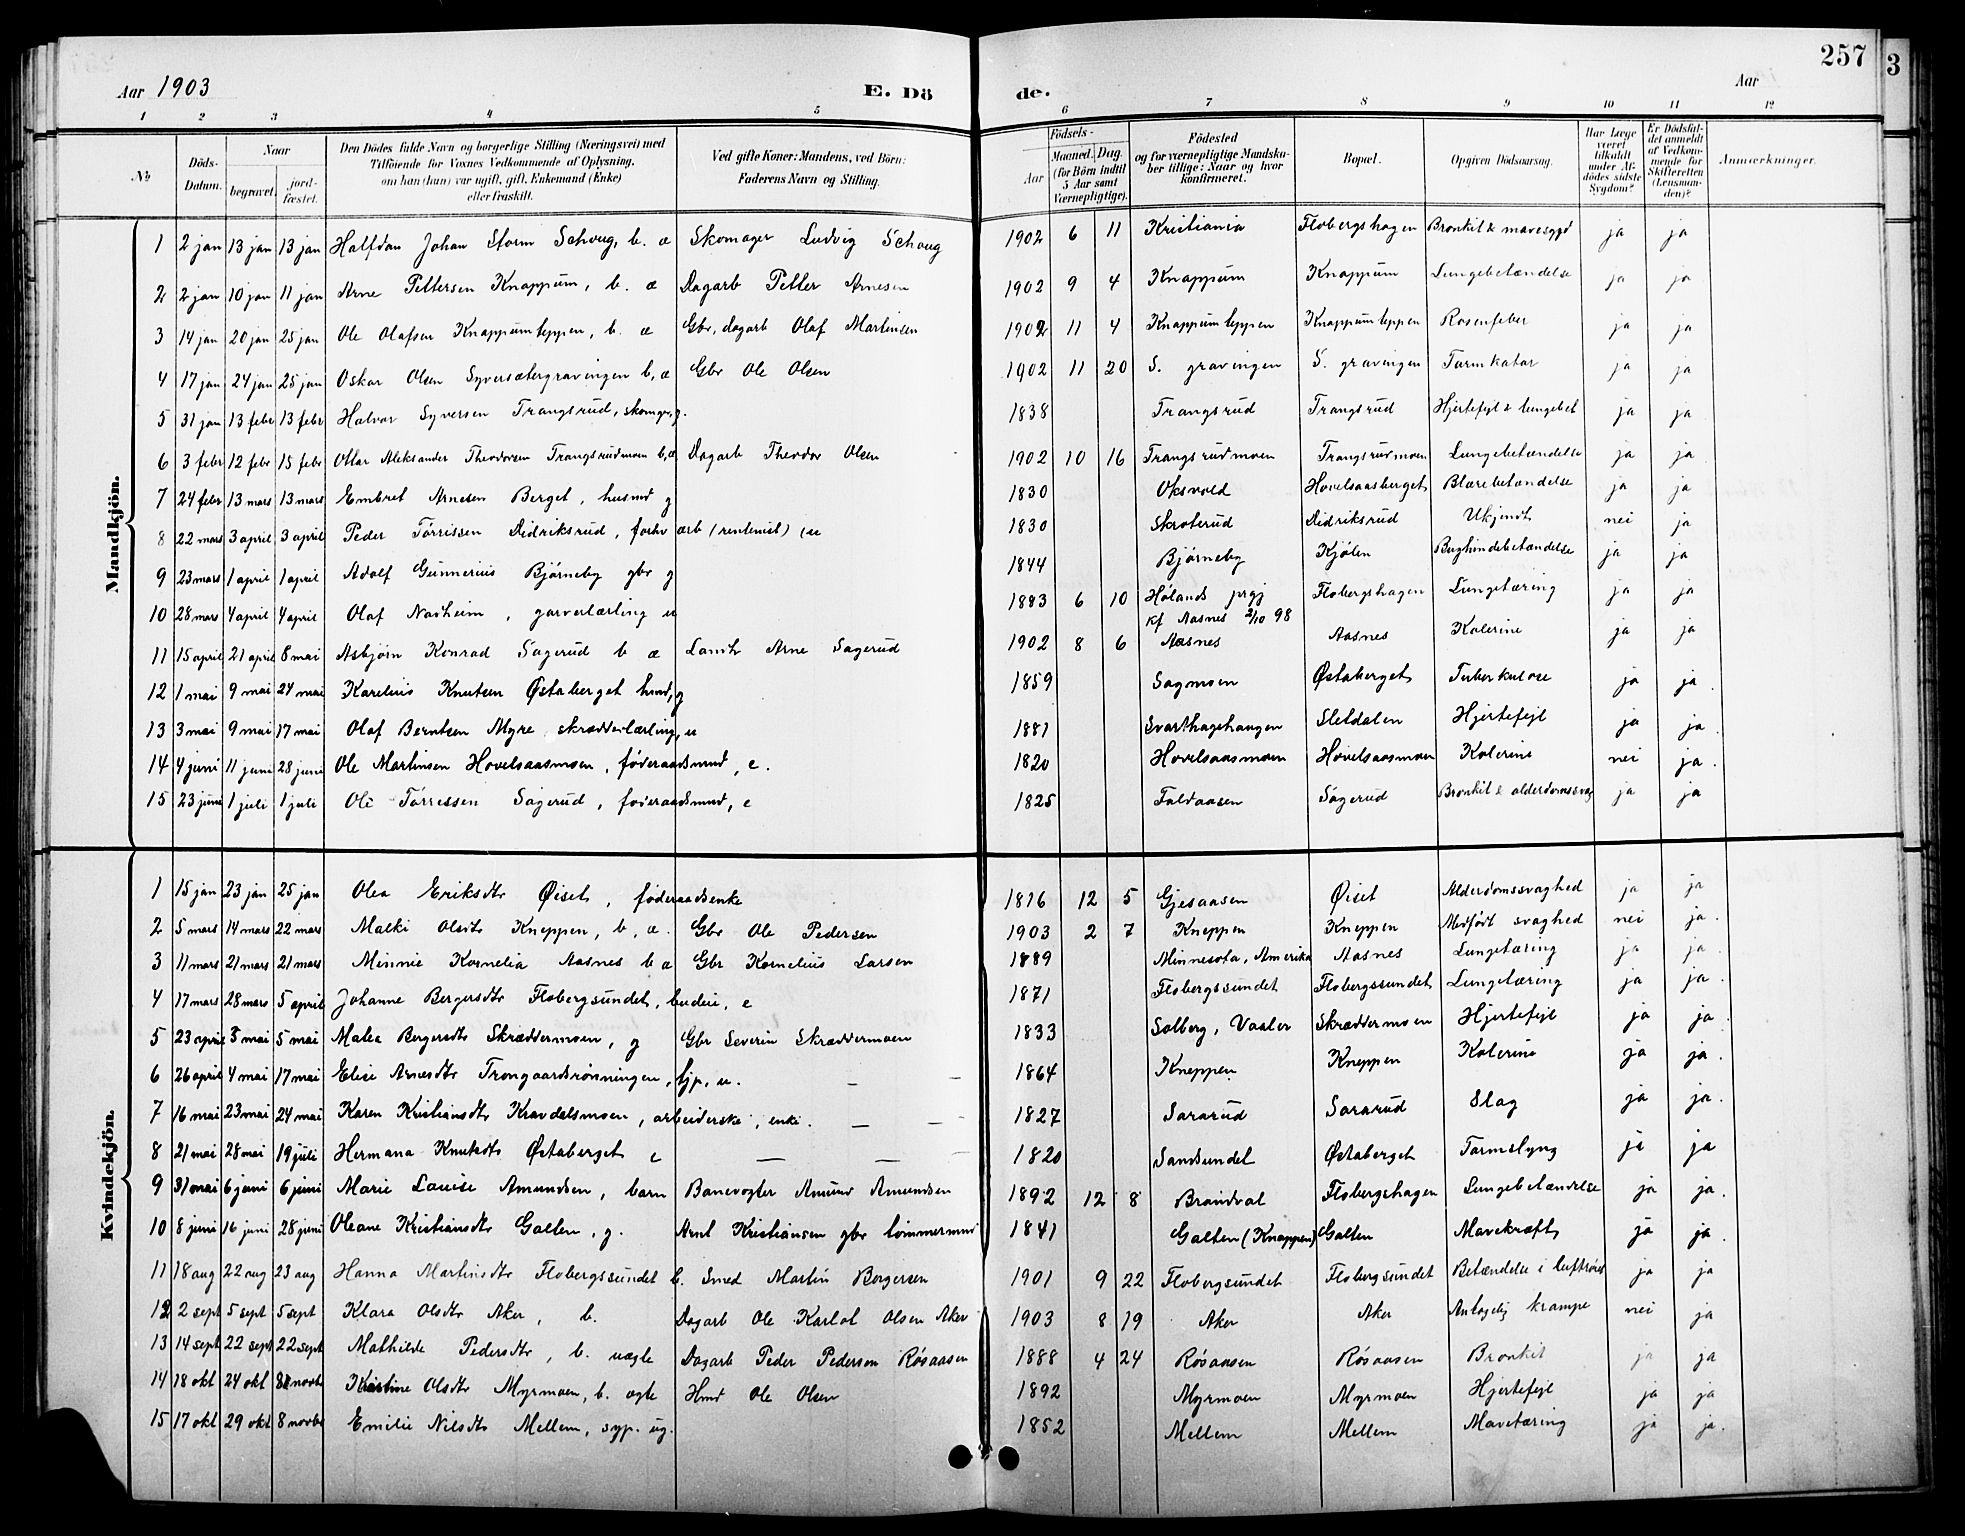 257
3
Aar 1903
E. Dö
de.
Aar
1 2 3 4 5 6 7 8 9 10 11 12
No
Döds-Datum.
Naar
begravet.
jord-fæstet.
Den Dödes fulde Navn og borgerlige Stilling (Næringsvei) med
Tilföiende for Voxnes Vedkommende af Oplysning,
om han (hun) var ugift, gift, Enkemand (Enke)
eller fraskilt.
Ved gifte Koner: Mandens, ved Börn:
Faderens Navn og Stilling.
Födsels-
Aar
Maaned. Dag.
(for Börn indtil
5 Aar samt
Værnepligtige).
Födested
og for værnepligtige Mandskaber tillige: Naar og hvor
konfirmeret.
Bopæl.
Opgiven Dödsaarsag.
Har Læge
været
tilkaldt
under Afdödes sidste
Sygdom?
Er Dödsfaldet anmeldt
af Vedkommende for
Skifteretten
(Lensmanden)?
Anmærkninger.
Mandkjön.
1 2 jan 13 jan 13 jan Halfdan Johan Storm Schoug, b. æ Skomager Ludvig Schoug 1902 6 11 Kristiania Flobergshagen Bronkit & mavesygd ja ja
2 2 jan 10 jan 11 jan Arne Pettersen Knappum, b. æ Dagarb Petter Arnesen 1902 9 4 Knappum Knappum Lungebetændelse ja ja
3 14 jan 20 jan 25 jan Ole Olafsen Knappumteppen, b. æ Gbr, dagarb Olaf Martinsen 1902 11 4 Knappumteppen Knappumteppen Rosenfeber ja ja
4 17 jan 24 jan 25 jan Oskar Olsen Syversætergravingen b, æ Gbr Ole Olsen 1902 11 20 S. gravingen S. gravingen Tarmkatar ja ja
5 31 jan 13 febr 13 febr Halvor Syversen Trangsrud, skomgr, g. 1838 Trangsrud Trangsrud Hjertefejl & lungebet ja ja
6 3 febr 12 febr 15 febr Ottar Aleksander Theodorsen Trangsrudmoen b, æ Dagarb Theodor Olsen 1902 10 16 Trangsrudmoen Trangsrudmoen Lungebetændelse ja ja
7 24 febr 13 mars 13 mars Embret Arnesen Berget, husmd g 1830 Oksvold Hovelsaasberget Blærebetændelse ja ja
8 22 mars 3 april 3 april Peder Tørrissen Didriksrud, forhv arb (rentenist) (u 1830 Skroterud Didriksrud Ukjendt nei ja
9 23 mars 1 april 1 april Adolf Gunnerius Bjørneby gbr g 1844 Bjørneby Kjølen Bughindebetændelse ja ja
10 28 mars 4 april 4 april Olaf Nasheim, garverlærling u 1883 6 10 Hølands prgj Flobergshagen Lungetæring ja ja
kf Aasnes 2/10 98
11 15 april 21 april 8 mai Asbjørn Konrad Sagerud b æ Landh Arne Sagerud 1902 8 6 Aasnes Aasnes Kolerine ja ja
12 1 mai 9 mai 24 mai Karelius Knutsen Østaberget hmd, g 1859 Sagmoen Østaberget Tuberkulose ja ja.
13 3 mai 9 mai 17 mai Olaf Berntsen Myre, skrædderlærling, u 1881 Svarthagehaugen Sletdalen Hjertefejl ja ja.
14 4 juni 11 juni 28 juni Ole Martinsen Hovelsaasmoen, føderaadsmnd, e. 1820 Hovelsaasmoen Hovelsaasmoen Kolerine nei ja.
15 23 juni 1 juli 1 juli Ole Tørrissen Sagerud, føderaadsmnd, e 1825 Faldaasen Sagerud Bronkit & alderdomssvag ja ja
Kvindekjön.
1 15 jan 23 jan 25 jan Olea Eriksdtr Øiset, føderaadsenke 1816 12 5 Gjesaasen Øiset Alderdomssvaghed ja ja
2 5 mars 14 mars 22 mars Malki Olsdtr Kneppen, b, æ. Gbr Ole Pedersen 1903 2 7 Kneppen Kneppen Medfødt svaghed nei ja.
3 11 mars 21 mars 21 mars Minnie Kornelia Aasnes b æ Gbr Kornelius Larsen 1889 Minnesota, Amerika Aasnes Lungetæring ja ja.
4 17 mars 28 mars 5 april Johanne Bergersdtr Flobergsundet, budeie, e 1871 Flobergssundet Flobergssundet Lungetæring ja ja.
5 23 april 5 mai 5 mai Malea Bergersdtr Skræddermoen, g Gbr Severin Skræddermoen 1833 Solberg, Vaaler Skræddermoen Hjertefejl ja ja.
6 26 april 4 mai 17 mai Elise Arnesdtr Trongaardsrønningen, tjp, u. — — 1864 Kneppen Kneppen Kolerine ja ja.
7 16 mai 23 mai 24 mai Karen Kristiansdtr Kravdalsmoen, arbeiderske, enke. — — 1827 Sararud Sararud Slag ja ja.
8 21 mai 28 mai 19 juli Hermana Knutsdtr Østaberget e — — — 1820 Sandsundet Østaberget Tarmslyng ja ja
9 31 mai 6 juni 6 juni Marie Louise Amundsen, barn Banevogter Amund Amundsen 1892 12 8 Brandval Flobergshagen Lungebetændelse ja ja.
10 8 juni 16 juni 28 juni Oleane Kristiansdtr Galten, g. Arnt Kristiansen gbr tømmermnd 1841 Galten (Knappen) Galten Mavekræft ja ja.
11 18 aug 22 aug 23 aug Hanna Martinsdtr Flobergssundet b. Smed Martin Borgersen 1901 9 22 Flobergsundet Flobergsundet Betændelse i luftrøret ja ja
12 2 sept 5 sept 5 sept Klara Olsdtr Aker, b. Dagarb Ole Karlot Olsen Aker 1903 8 19 Aker Aker Antagelig krampe nei ja
13 14 sept 22 sept 22 sept Mathilde Pedersdtr, b. uægte Dagarb Peder Pedersen Røsaasen 1888 4 24 Røsaasen Røsaasen Bronkit ja ja
14 18 okt 24 okt 8 novbr Kristine Olsdtr Myrmoen, b. ægte Hmd Ole Olsen 1892 Myrmoen Myrmoen Hjertefejl ja ja
15 17 okt 29 okt 8 novbr Emilie Nilsdtr Mellem, syp. ug. 1852 Mellem Mellem Mavetæring ja ja.